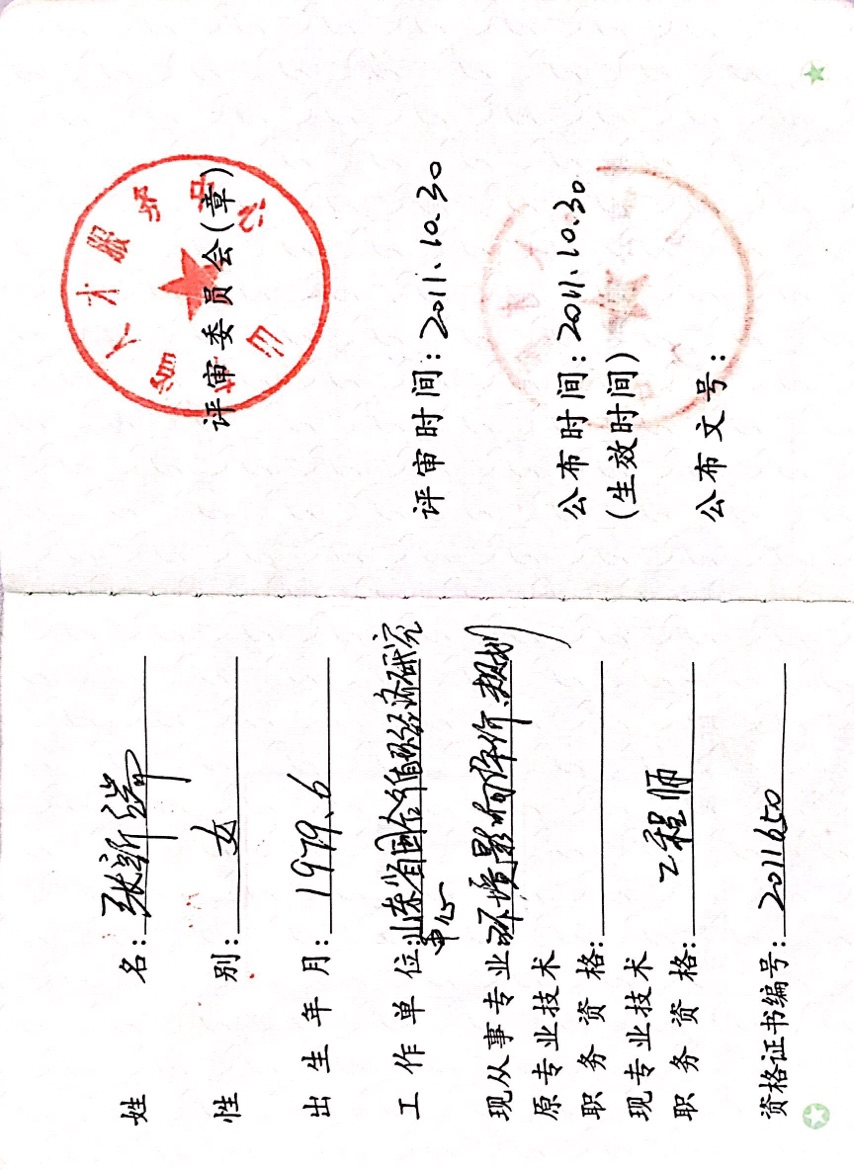 姓名：张新瑞
性别：女
出生年月：1979.6
工作单位：山东省国合循环经济研究
中心
现从事专业：环境影响评价、规划
原专业技术
职务资格：
现专业技术
职务资格：工程师
资格证书编号：2011650
山东省人才服务中心
评审委员会(章)
评审时间：2011.10.30
公布时间：2011.10.30
(生效时间)
公布文号：